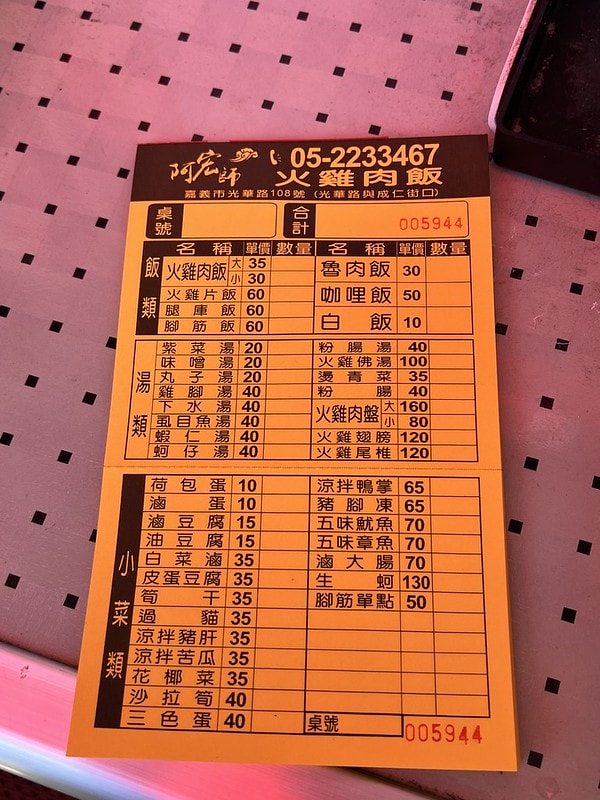 阿宏師 05-2233467
火雞肉飯
嘉義市光華路108號 (光華路與成仁街口)
桌號 合計 005944
飯類
名稱 單價 數量 名稱 單價 數量
火雞肉飯 大 35 魯肉飯 30
小 30
火雞片飯 60 咖哩飯 50
腿庫飯 60
腳筋飯 60 白飯 10
湯類
紫菜湯 20 粉腸湯 40
味噌湯 20 火雞佛湯 100
丸子湯 20 燙青菜 35
雞腳湯 40 粉腸 40
下水湯 40 火雞肉盤 大 160
虱目魚湯 40 小 80
蝦仁湯 40 火雞翅膀 120
蚵仔湯 40 火雞尾椎 120
小菜類
荷包蛋 10 涼拌鴨掌 65
滷蛋 10 豬腳凍 65
滷豆腐 15 五味魷魚 70
油豆腐 15 五味章魚 70
白菜滷 35 滷大腸 70
皮蛋豆腐 35 生蚵 130
筍干 35 腳筋單點 50
過貓 35
涼拌豬肝 35
涼拌苦瓜 35
花椰菜 35
沙拉筍 40
三色蛋 40 桌號 005944